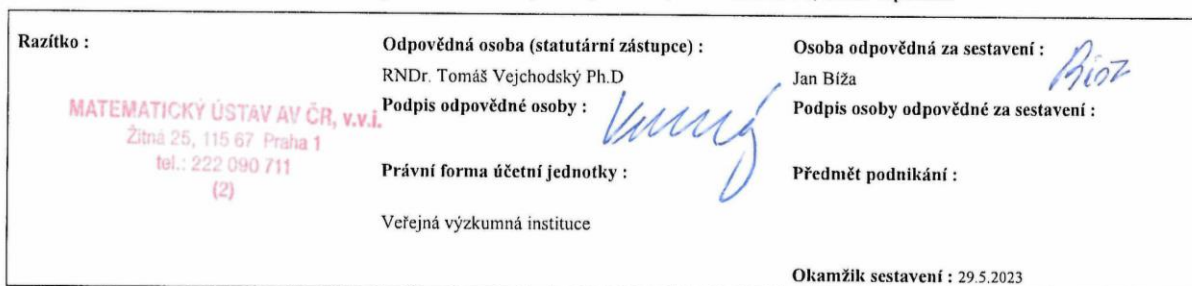 Razítko :
MATEMATICKÝ ÚSTAV AV ČR, v.v.i.
Žitná 25, 115 67 Praha 1
tel.: 222 090 711
(2)
Odpovědná osoba (statutární zástupce) :
RNDr. Tomáš Vejchodský Ph.D
Podpis odpovědné osoby :
Právní forma účetní jednotky :
Veřejná výzkumná instituce
Osoba odpovědná za sestavení :
Jan Bíža
Podpis osoby odpovědné za sestavení :
Předmět podnikání :
Okamžik sestavení : 29.5.2023